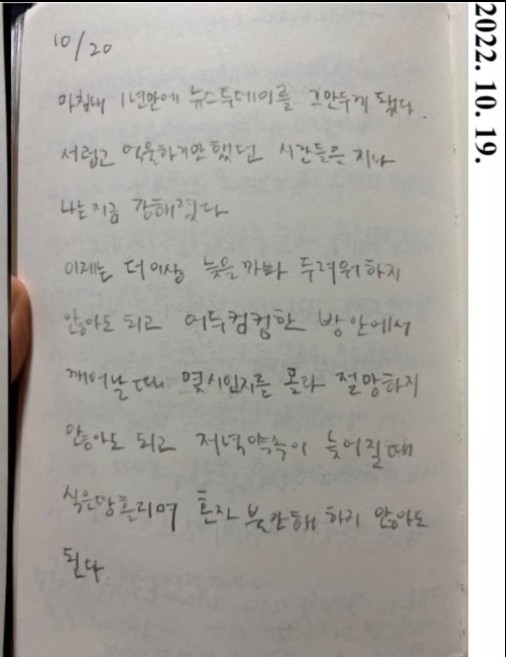 10/20
마침내 1년만에 뉴스투데이를 그만두게 됐다.
서럽고 억울하기만 했던 시간들을 지나
나는 지금 강해졌다
이제는 더이상 늦을까봐 두려워하지
않아도 되고 어두컴컴한 방 안에서
깨어날 때 몇시인지를 몰라 절망하지
않아도 되고 저녁약속이 늦어질 때
식은땀흘리며 혼자 불안해 하지 않아도
된다.
2022. 10. 19.